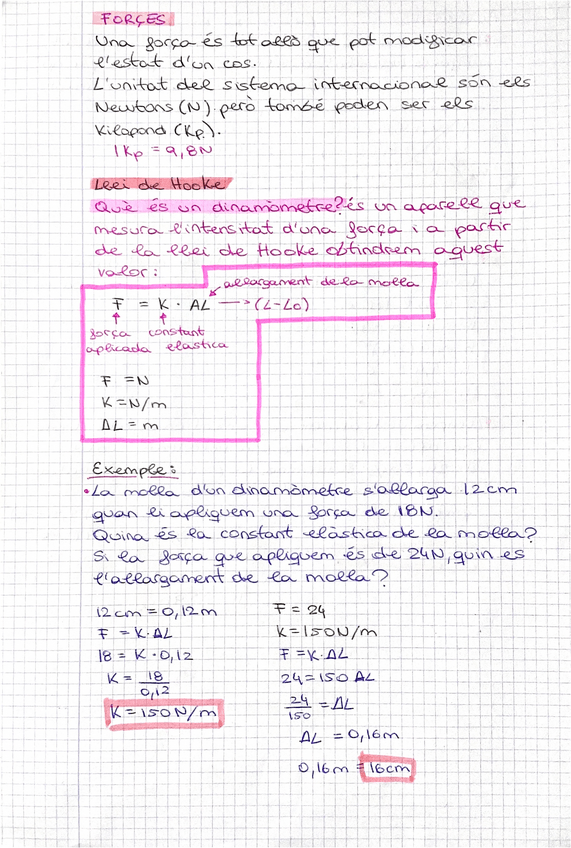 FORÇES
Una força és tot allò que pot modificar
l'estat d'un cos.
L'unitat del sistema internacional són els
Newtons (N) però també poden ser els
Kilopond (Kp).
1 Kp = 9,8N
Llei de Hooke
Què és un dinamòmetre? és un aparell que
mesura l'intensitat d'una força i a partir
de la llei de Hooke obtindrem aquest
valor:
allargament de la molla
F = K · ΔL → (L-L0)
força constant
aplicada elàstica
F = N
K = N/m
ΔL = m
Exemple:
• La molla d'un dinamòmetre s'allarga 12cm
quan li apliquem una força de 18N.
Quina és la constant elàstica de la molla?
Si la força que apliquem és de 24N, quin es
l'allargament de la molla?
12 cm = 0,12m
F = K·ΔL
18 = K · 0,12
K = 18
0,12
K = 150 N/m
F = 24
K = 150N/m
F = K·ΔL
24 = 150 ΔL
24 = ΔL
150
ΔL = 0,16m
0,16m = 16cm